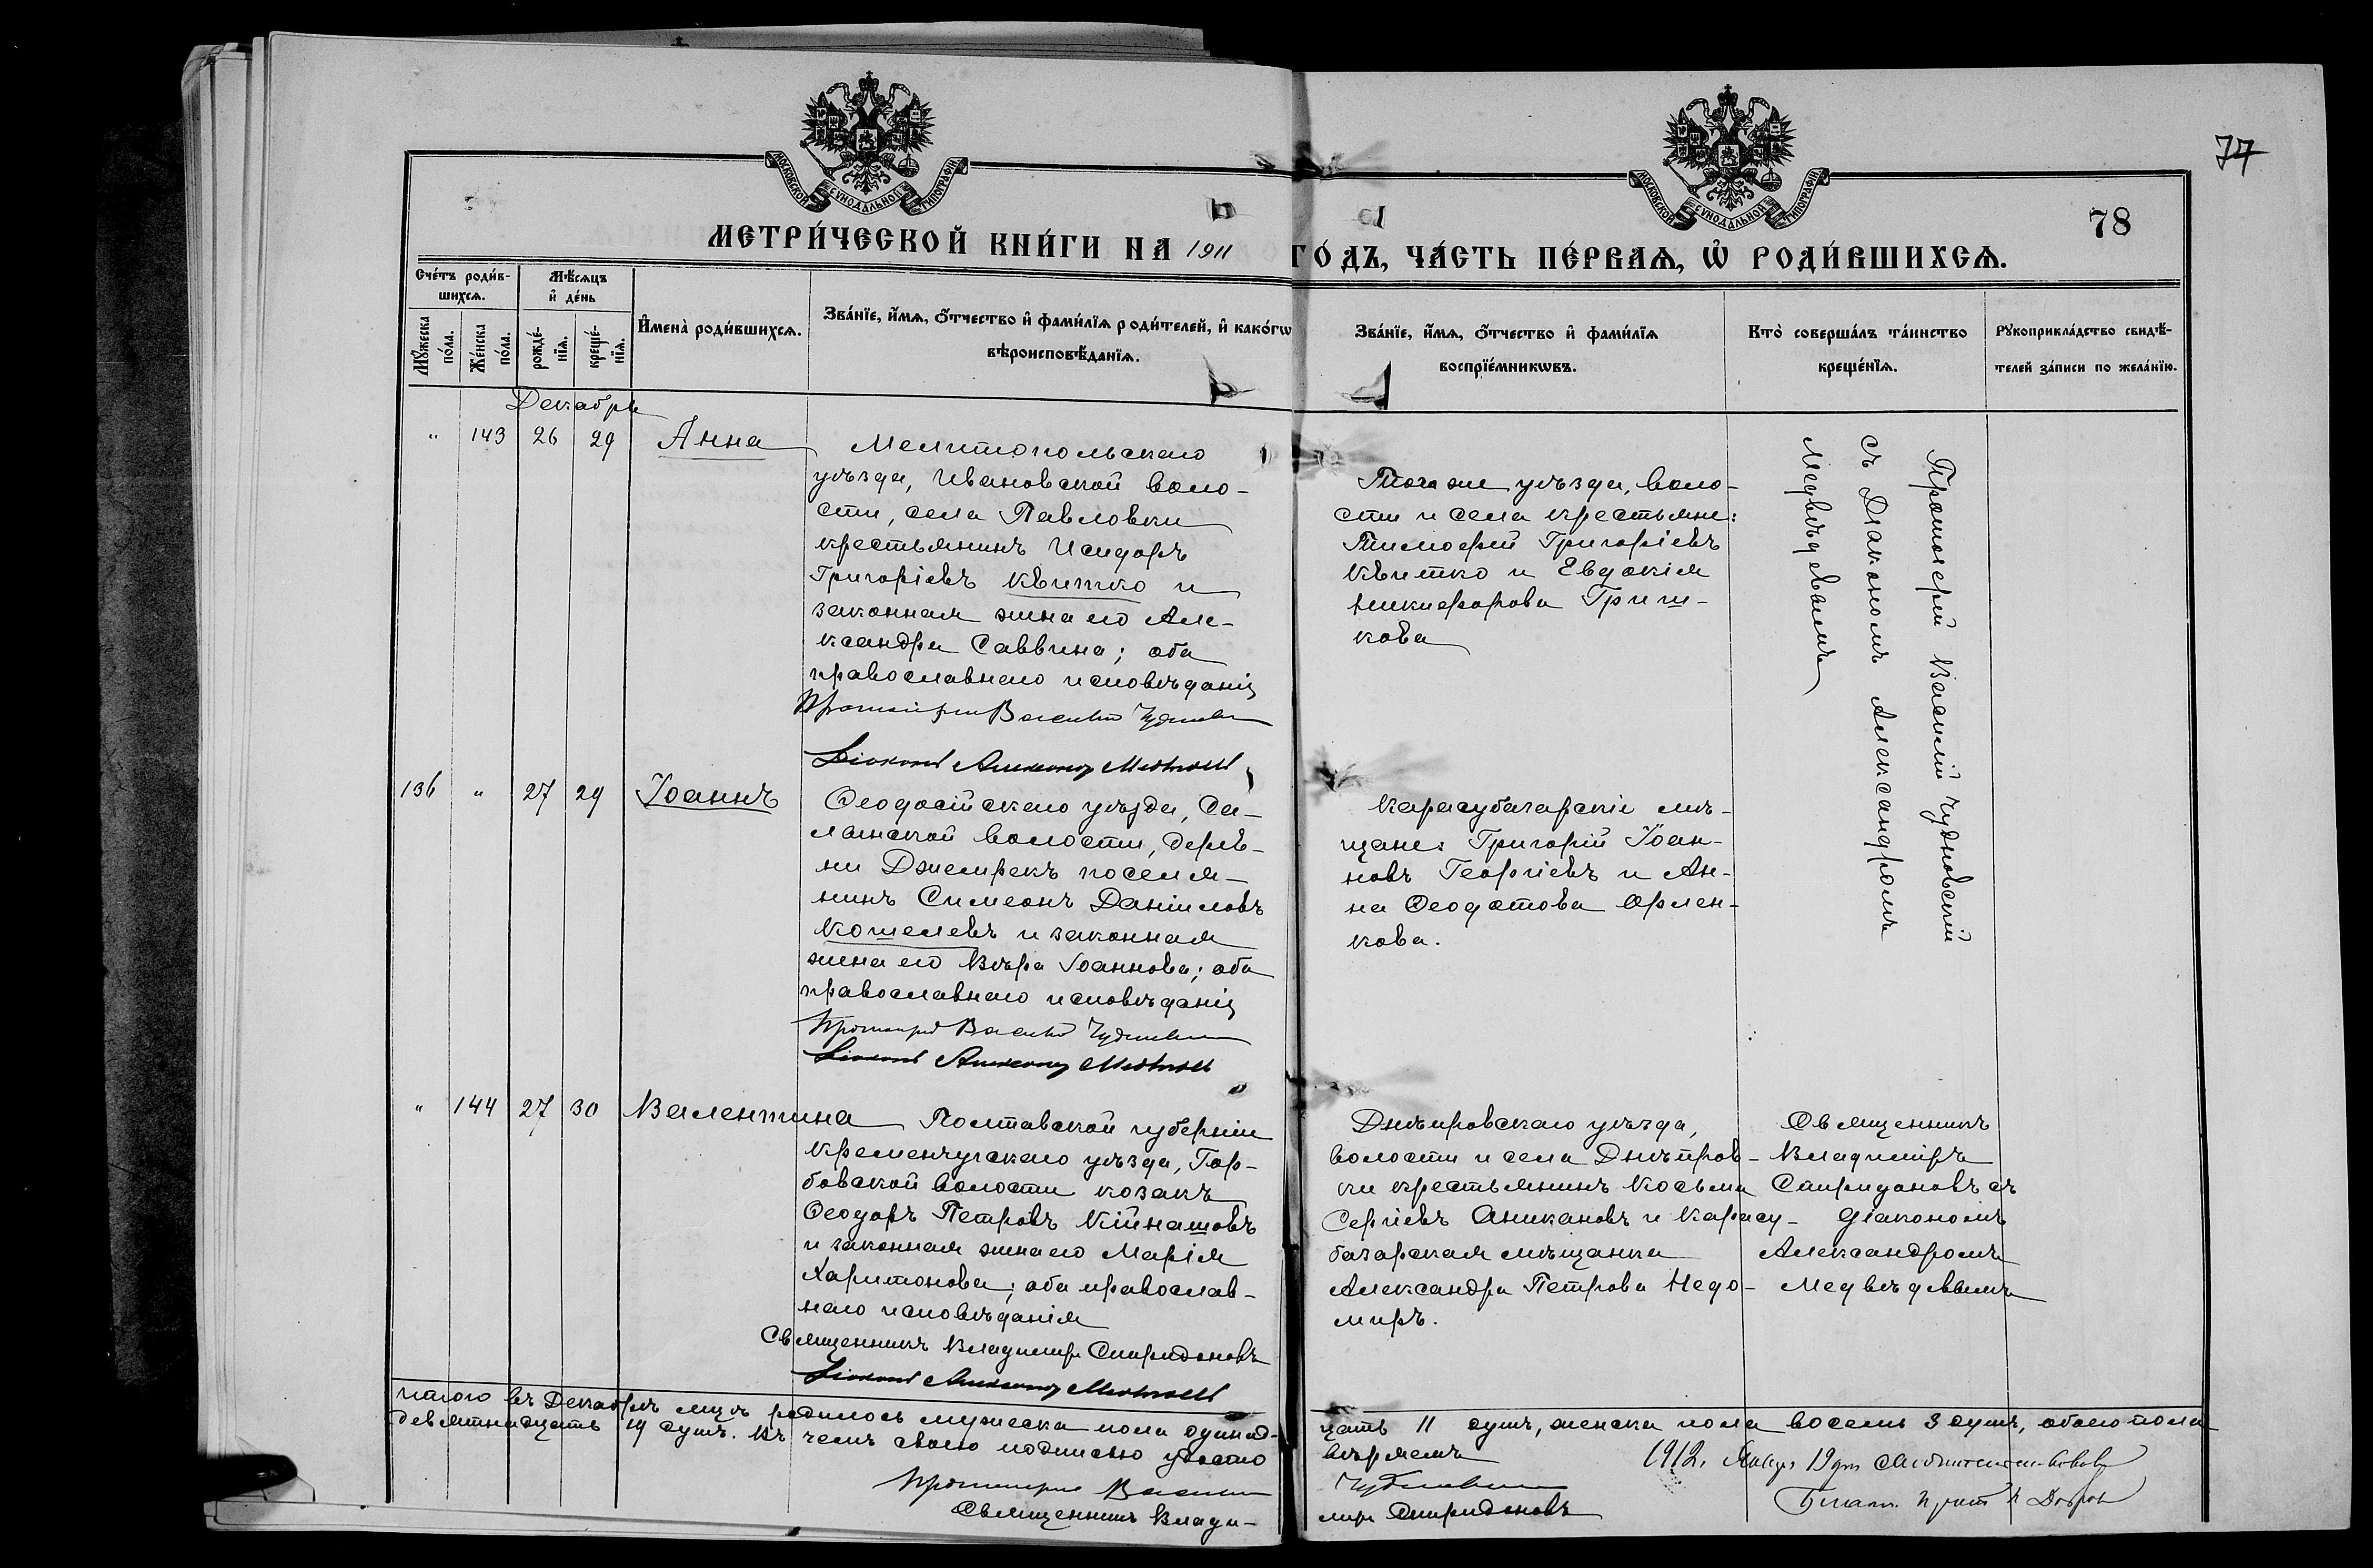 77
78
МОСКОВСКОЙ СѴНОДАЛЬНОЙ ТИПОГРАФІИ
МОСКОВСКОЙ СѴНОДАЛЬНОЙ ТИПОГРАФІИ
МЕТРИ́ЧЕСКОЙ КНИ́ГИ НА 1911 ГО́ДЪ, ЧА́СТЬ ПЕ́РВАѦ, Ѡ҆ РОДИ́ВШИХСѦ.
Сче́тъ роди́в-
шихсѧ.
Мꙋ́жеска
по́ла.
Же́нска
по́ла.
Мѣ́сѧцъ
и҆ де́нь
рожде́-
нїѧ.
креще́-
нїѧ.
И҆мена̀ роди́вшихсѧ.
Зва́нїе, и҆́мѧ, ѻ҆́тчество и҆ фами́лїѧ роди́телей, и҆ како́гѡ
вѣроисповѣ́данїѧ.
Зва́нїе, и҆́мѧ, ѻ҆́тчество и҆ фами́лїѧ
воспрїе́мникѡвъ.
Кто̀ соверша́лъ та́инство
креще́нїѧ.
Рꙋкоприкла́дство свидѣ́-
телей за́писи по жела́нїю.
Декабрь
" 143 26 29 Анна
Мелитопольскаго
уѣзда, Ивановской воло-
сти, села Павловки
крестьянинъ Исидоръ
Григоріевъ Квитко и
законная жена его Але-
ксандра Саввина; оба
православнаго исповѣданія
Протоіерей Василій Чудновскій
Діаконъ Александръ Медвѣдевъ
Того же уѣзда, воло-
сти и села крестьяне:
Тимофей Григоріевъ
Квитко и Евдокія
Никифорова Гриш-
кова
Протоіерей Василій Чудновскій
съ Діакономъ Александромъ
Медвѣдевымъ
136 " 27 29 Іоаннъ
Ѳеодосійскаго уѣзда, Са-
лынской волости, дерев-
ни Джемрекъ поселя-
нинъ Симеонъ Даніиловъ
Кошелевъ и законная
жена его Вѣра Іоаннова; оба
православнаго исповѣданія
Протоіерей Василій Чудновскій
Діаконъ Александръ Медвѣдевъ
Карасубазарскіе мѣ-
щане: Григорій Іоан-
новъ Георгіевъ и Ан-
на Ѳеодотова Орлен-
кова.
" 144 27 30 Валентина
Полтавской губерніи
Кременчугскаго уѣзда, Гор-
бовской волости козакъ
Ѳеодоръ Петровъ Кійнашовъ
и законная жена его Марія
Харитонова; оба православ-
наго исповѣданія
Священникъ Владиміръ Спиридоновъ
Діаконъ Александръ Медвѣдевъ
Днѣпровскаго уѣзда,
волости и села Днѣпров-
ки крестьянинъ Косьма
Сергіевъ Аникановъ и Карасу-
базарская мѣщанка
Александра Петрова Недо-
миръ.
Священникъ
Владиміръ
Спиридоновъ съ
діакономъ
Александромъ
Медвѣдевымъ
Итого въ Декабрѣ мцѣ родилось мужеска пола одинад-
цать 11 душъ, женска пола восемь 8 душъ, обоего пола
девятнадцать 19 душъ. Въ чемъ своею подписью удосто
вѣряемъ
Протоіерей Василій
Чудновскій
Священникъ Влади-
міръ Спиридоновъ
1912, Января 19 дня